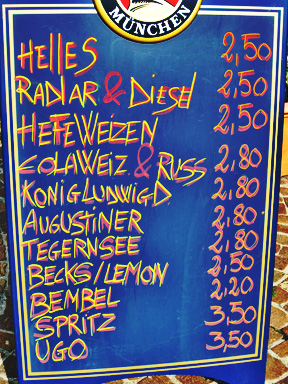 MÜNCHEN
HELLES 2,50
RADLAR & DIESEL 2,50
HEFEWEIZEN 2,50
COLAWEIZ. & RUSS 2,80
KONIGLUDWIGD 2,80
AUGUSTINER 2,80
TEGERNSEE 2,80
BECKS/LEMON 2,50
BEMBEL 2,20
SPRITZ 3,50
UGO 3,50